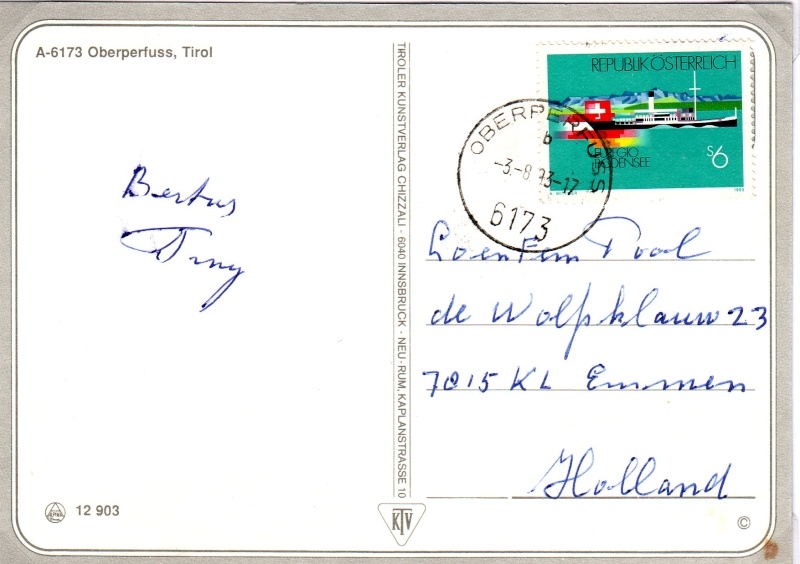 A-6173 Oberperfuss, Tirol
REPUBLIK ÖSTERREICH
EUREGIO
BODENSEE
S6
1993
OBERPERFUSS
b
-3.-8.93-17
6173
TIROLER KUNSTVERLAG CHIZZALI - 6040 INNSBRUCK - NEU-RUM, KAPLANSTRASSE 10
Bertus
de Wolfsklauw 23
7815 KL Emmen
Holland
12 903
KTV
©